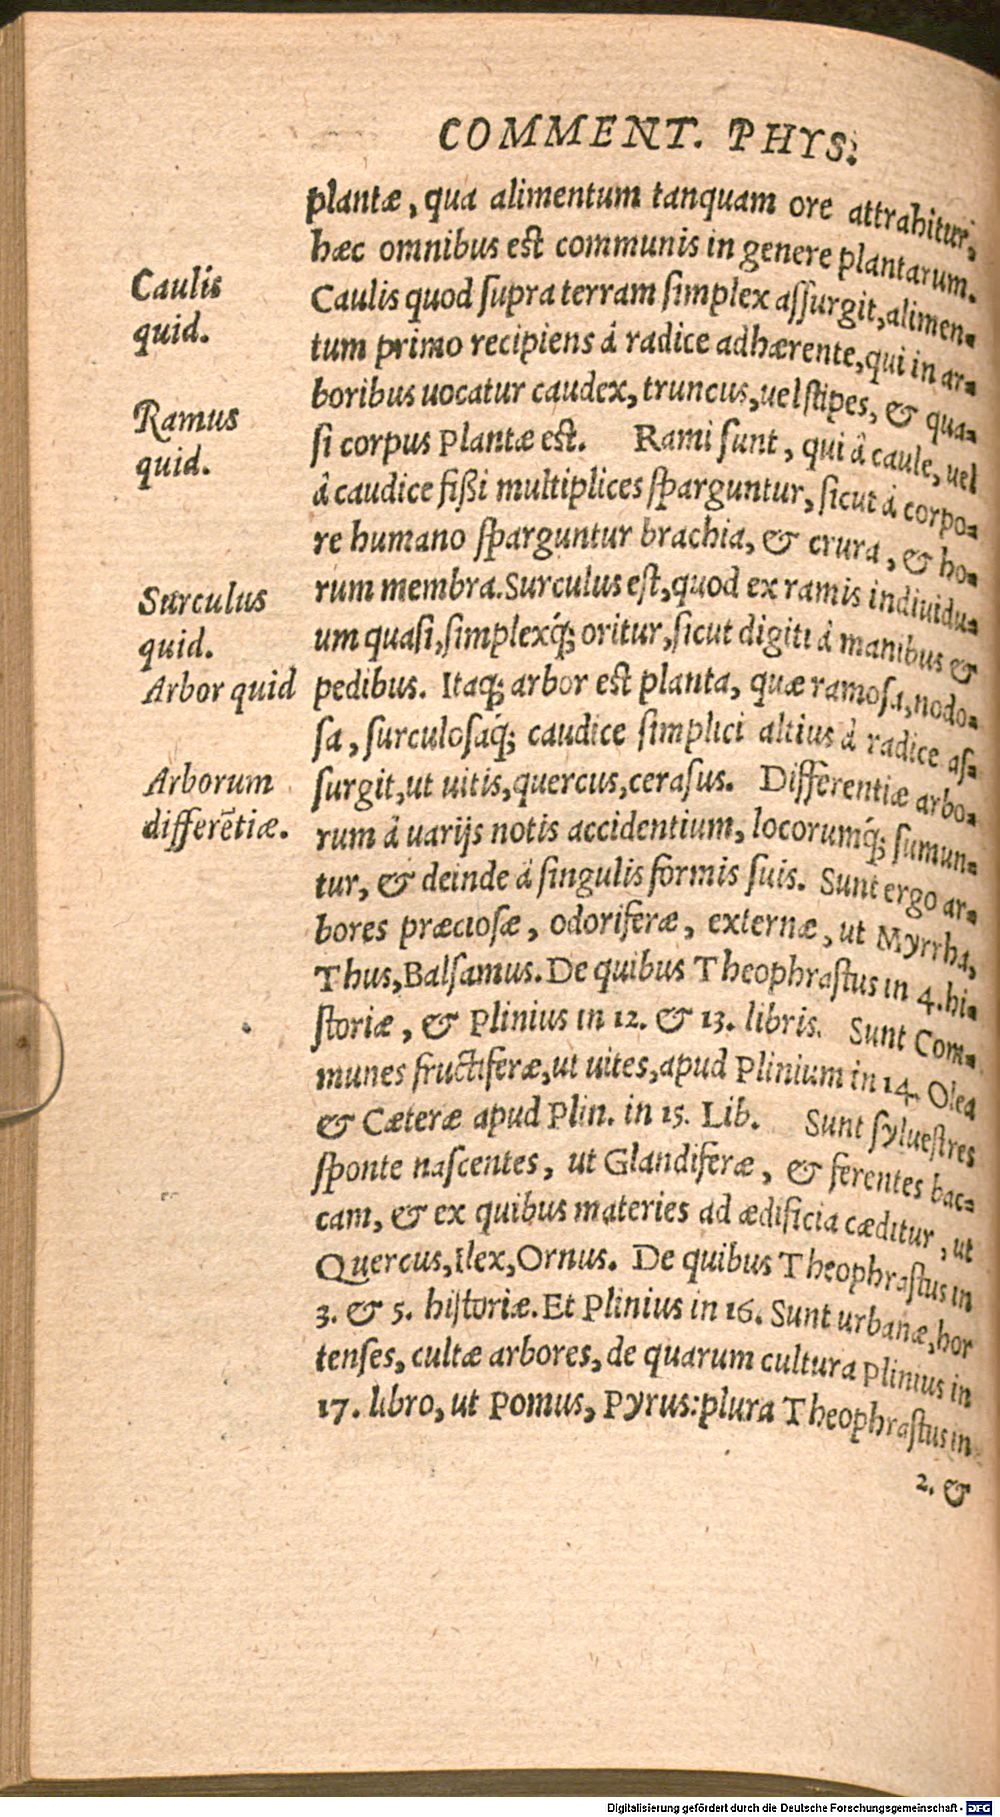 COMMENT. PHYS.
plantæ, qua alimentum tanquam ore attrahitur,
hæc omnibus est communis in genere plantarum.
Caulis quid.
Caulis quod supra terram simplex assurgit, alimen-
tum primo recipiens à radice adhærente, qui in ar-
boribus uocatur caudex, truncus, uel stipes, & qua-
Ramus quid.
si corpus plantæ est. Rami sunt, qui à caule, uel
à caudice fißi multiplices sparguntur, sicut à corpo-
re humano sparguntur brachia, & crura, & ho-
Surculus quid.
rum membra. Surculus est, quod ex ramis indiuidu-
um quasi, simplexq́; oritur, sicut digiti à manibus &
Arbor quid
pedibus. Itaq; arbor est planta, quæ ramosa, nodo-
sa, surculosaq́; caudice simplici altius à radice as-
Arborum differẽtiæ.
surgit, ut uitis, quercus, cerasus. Differentiæ arbo-
rum à uarijs notis accidentium, locorumq́; sumun-
tur, & deinde à singulis formis suis. Sunt ergo ar-
bores præciosæ, odoriferæ, externæ, ut Myrrha,
Thus, Balsamus. De quibus Theophrastus in 4. hi-
storiæ, & Plinius in 12. & 13. libris. Sunt Com-
munes fructiferæ, ut uites, apud Plinium in 14. Olea
& Cæteræ apud Plin. in 15. Lib. Sunt syluestres
sponte nascentes, ut Glandiferæ, & ferentes bac-
cam, & ex quibus materies ad ædificia cæditur, ut
Quercus, Ilex, Ornus. De quibus Theophrastus in
3. & 5. historiæ. Et Plinius in 16. Sunt urbanæ, hor
tenses, cultæ arbores, de quarum cultura Plinius in
17. libro, ut Pomus, Pyrus: plura Theophrastus in
2. &
Digitalisierung gefördert durch die Deutsche Forschungsgemeinschaft - DFG